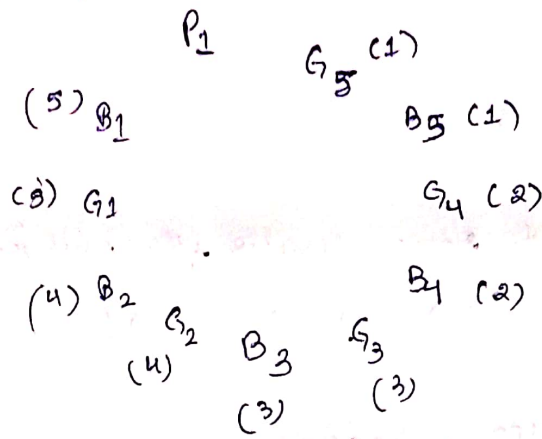 P1
G5 (1)
(5) B1
B5 (1)
(5) G1
G4 (2)
(4) B2
B4 (2)
G2
(4)
B3
(3)
G3
(3)